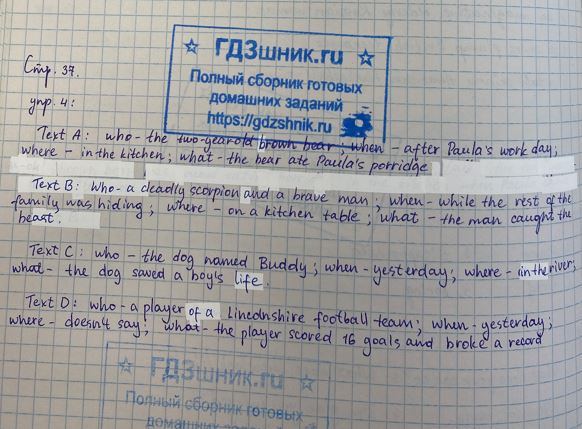 ☆ ГДЗшник.ru ☆
Полный сборник готовых
домашних заданий
https://gdzshnik.ru
Стр. 37.
упр. 4:
Text A: who - the two-year-old brown bear; when - after Paula's work day;
where - in the kitchen; what - the bear ate Paula's porridge
Text B: who - a deadly scorpion and a brave man; when - while the rest of the
family was hiding; where - on a kitchen table; what - the man caught the
beast.
Text C: who - the dog named Buddy; when - yesterday; where - in the river;
what - the dog saved a boy's life.
Text D: who - a player of a Lincolnshire football team; when - yesterday;
where - doesn't say; what - the player scored 16 goals and broke a record
☆ ГДЗшник.ru ☆
Полный сборник готовых
домашних заданий